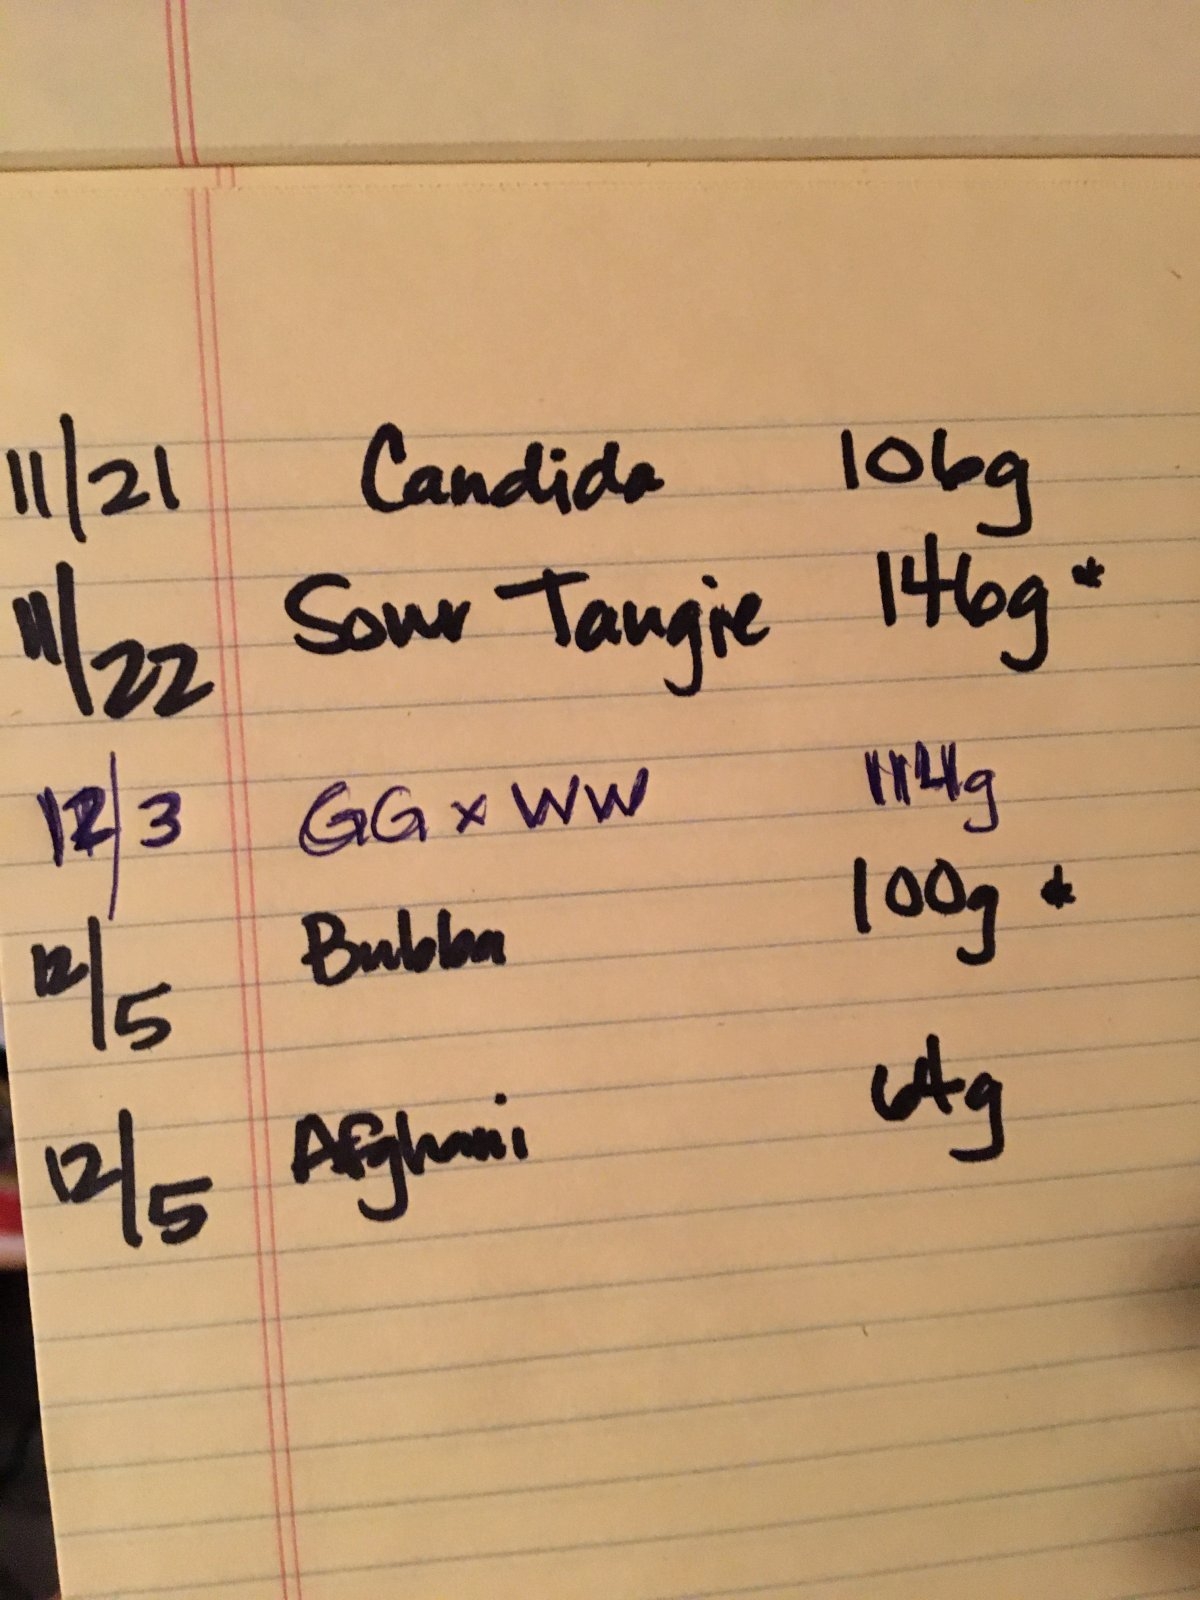 11/21 Candida 106g
11/22 Sour Tangie 146g *
12/3 GG x WW 114g
12/5 Bubba 100g *
12/5 Afghani 64g